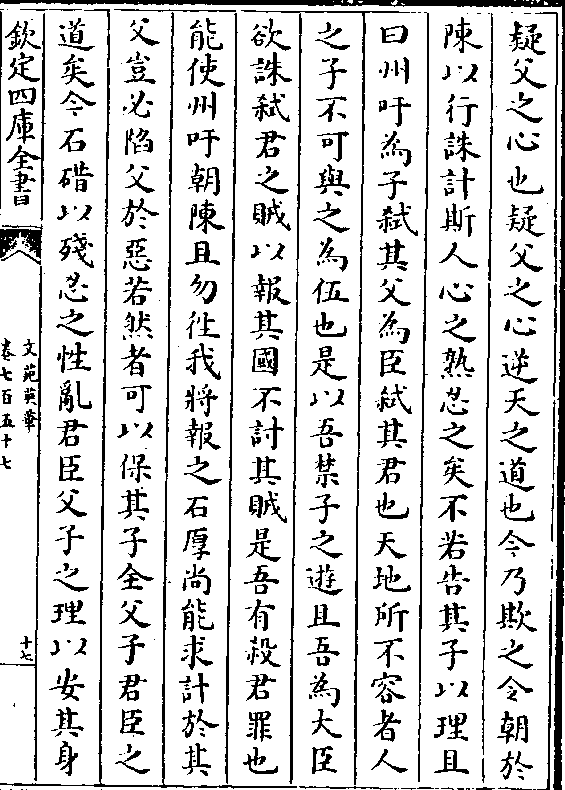 疑父之心也疑父之心逆天之道也今乃欺之令朝於
陳以行誅計斯人心之熟忍之矣不若告其子以理且
曰州吁為子弑其父為臣弑其君也天地所不容者人
之子不可與之為伍也是以吾禁子之遊且吾為大臣
欲誅弑君之賊以報其國不討其賊是吾有殺君罪也
能使州吁朝陳且勿徃我將報之石厚尚能求計於其
父豈必陷父於惡若然者可以保其子全父子君臣之
道矣今石碏以殘忍之性亂君臣父子之理以安其身
欽定四庫全書
文苑英華
卷七百五十七
十七